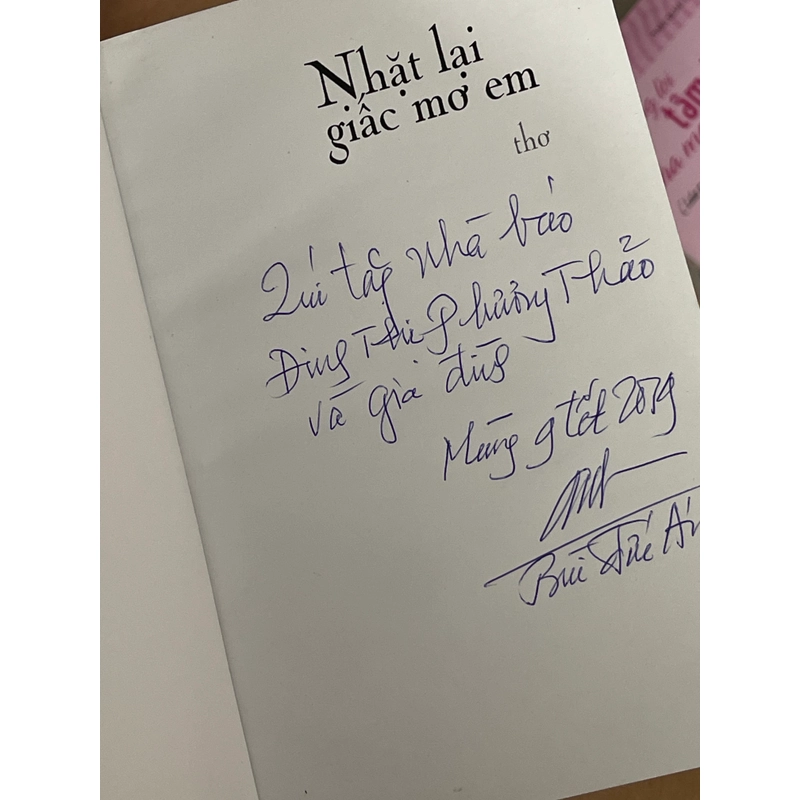 Nhặt lại
giấc mơ em
thơ
Quí tặng Nhà báo
Đinh Thị Phương Thảo
và gia đình
Mùng 9 tết 2019
Bùi Đức Án
tâm